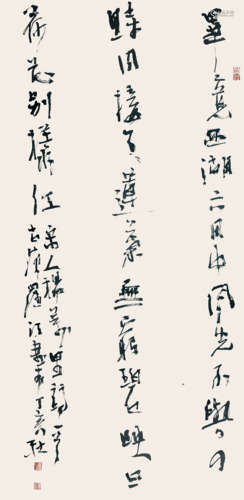 畢竟西湖六月中風光不與四
時同接天蓮葉無窮碧映日
荷花別樣紅
宋人楊萬里詩一首
丁亥秋